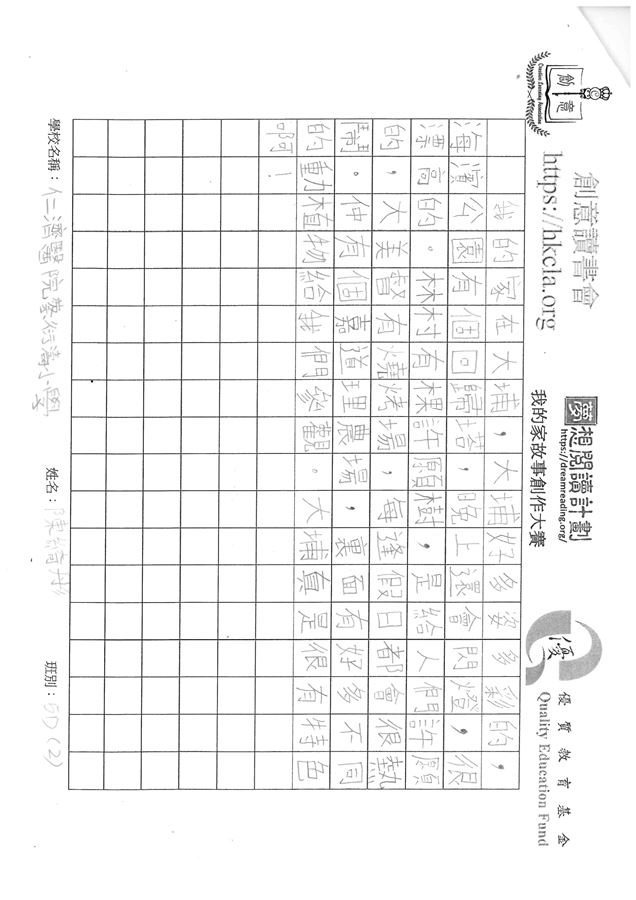 創意
Creative Learning Association
創意讀書會
https://hkcla.org
夢想閱讀計劃
https://dreamreading.org/
我的家故事創作大賽
優
優質教育基金
Quality Education Fund
我的家在大埔，大埔好多姿多彩的，
海濱公園有個回歸塔，晚上還會閃燈，很
漂高的。林村有棵許願樹，是給人們許願
的，大美督有燒烤場，每逢假日都會很熱
鬧。仲有個嘉道理農場，裏面有好多不同
的動植物給我們參觀。大埔真是很有特色
啊！
學校名稱：仁濟醫院蔡衍濤小學 姓名：陳綺 班別：5D（2）